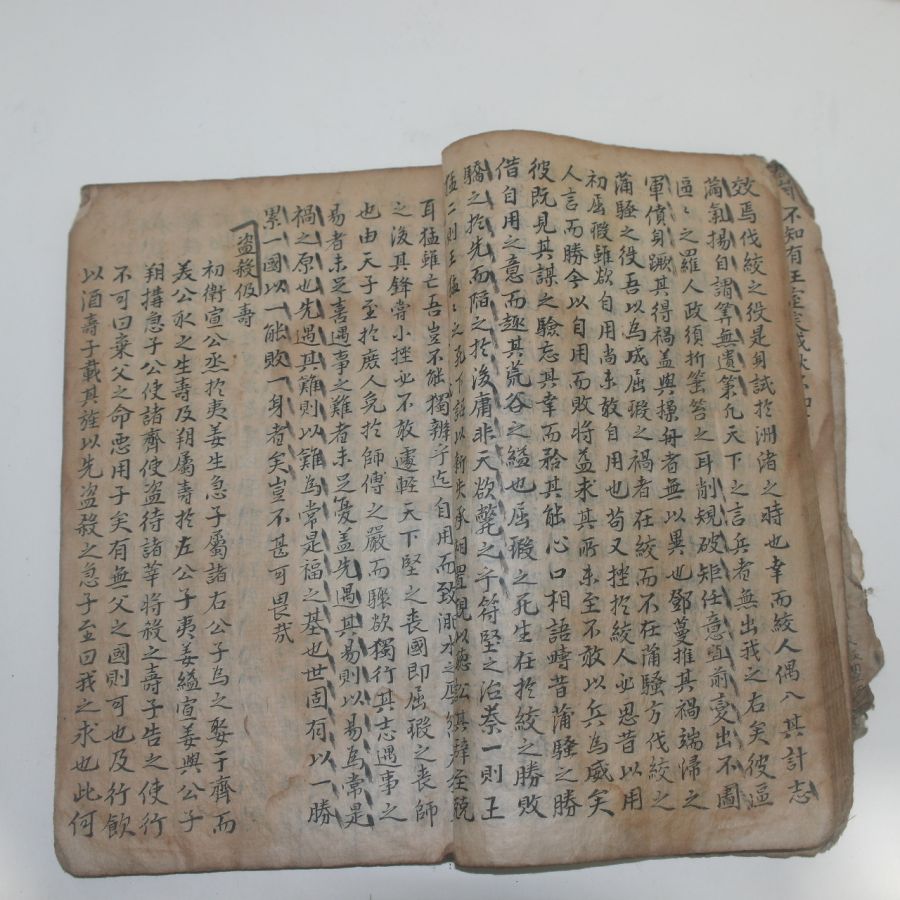 不知有王
效焉伐絞之役是身試於洲渚之時也幸而絞人偶入其計志
滿氣揚自謂筭無遺策凡天下之言兵者無出我之右矣彼區
區〻之羅人政須折箠笞之耳削規破矩任意直前變出不圖
軍僨身蹶其得禍盖與操舟者無以異也鄧蔓推其禍端歸之
蒲騷之役吾以為成屈瑕之禍者在絞而不在蒲騷方伐絞之
初屈瑕雖欲自用尚未敢自用也苟又挫於絞人必思昔以用
人言而勝今以自用而敗將益求其所未至不敢以兵為威矣
彼既見其謀之驗忘其幸而矜其能心口相語疇昔蒲騷之勝
借自用之意而趣其荒谷之縊也屈瑕之死生在於絞之勝敗
驕之於先而陷之於後庸非天欲斃之乎符堅之治秦一則王
猛二則王猛〻之死下詔以新失丞相置觀以聽訟其
耳猛雖亡吾豈不能獨辨乎迄自用而致
之後其鋒嘗小挫必不敢遽輕天下堅之喪國即屈瑕之喪師
也由天子至於庶人免於師傅之嚴而驟欲獨行其志遇事之
易者未足喜遇事之難者未足憂盖先遇其易則以易為常是
禍之原也先遇其難則以難為常是福之基也世固有以一勝
累一國以一能敗一身者矣豈不甚可畏哉
盜殺伋壽
初衛宣公烝於夷姜生急子屬諸右公子為之娶于齊而
美公取之生壽及朔屬壽於左公子夷姜縊宣姜與公子
朔搆急子公使諸齊使盜待諸莘將殺之壽子告之使行
不可曰棄父之命惡用子矣有無父之國則可也及行飲
以酒壽子載其旌以先盜殺之急子至曰我之求也此何